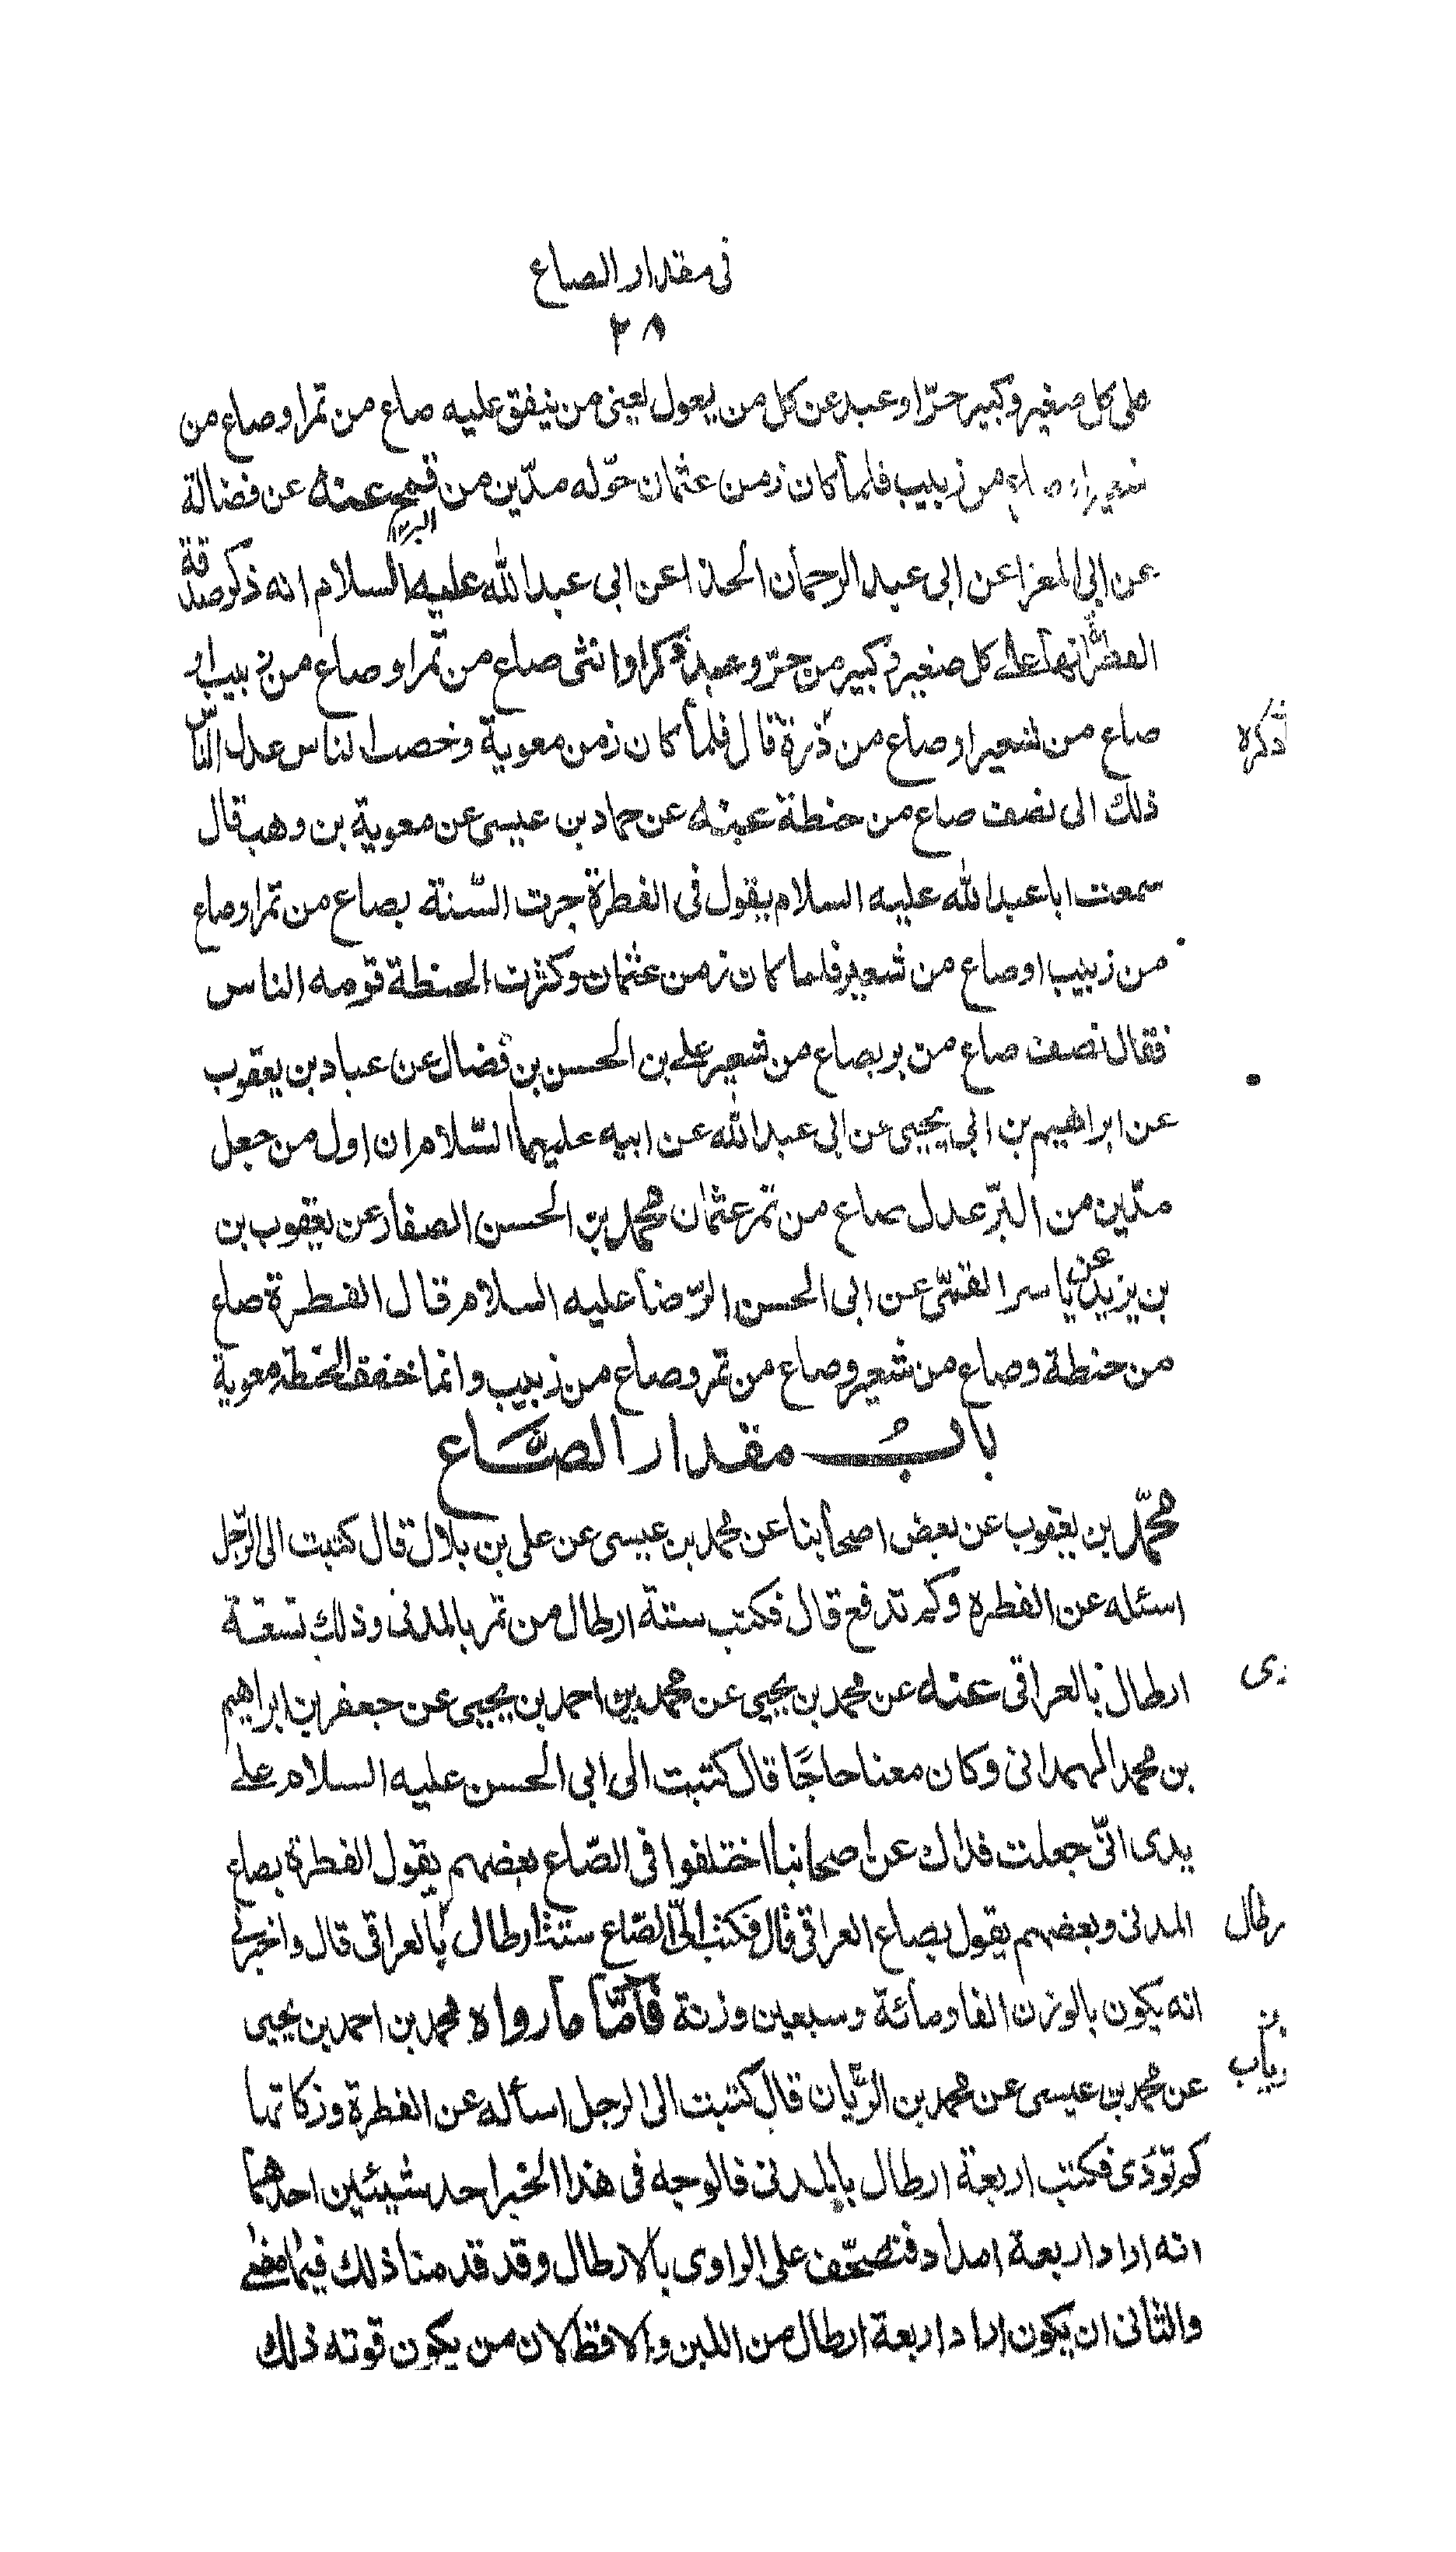 فى مقدار الصاع
٢٨
على كل صغير وكبير حرّ او عبد عن كل من يعول يعنى من ينفق عليه صاع من تمر او صاع من
شعير او صاع من زبيب فلما كان زمن عثمان حوّله مدّين من قمح عنه عن فضالة
عن ابى المعزا عن ابى عبد الرحمان الحذاء عن ابى عبد الله عليه السلام انه ذكر صدقة
الفطرة انها على كل صغير وكبير من حرّ وعبد ذكر او انثى صاع من تمر او صاع من زبيب او
صاع من شعير او صاع من ذرة قال فلما كان زمن معوية وخصب الناس عدل الناس
ذلك الى نصف صاع من حنطة عنه عن حماد بن عيسى عن معوية بن وهب قال
سمعت ابا عبد الله عليه السلام يقول فى الفطرة جرت السّنة بصاع من تمر او صاع
من زبيب او صاع من شعير فلما كان زمن عثمان وكثرت الحنطة قومه الناس
فقال نصف صاع من بر بصاع من شعير على بن الحسن بن فضال عن عباد بن يعقوب
عن ابراهيم بن ابى يحيى عن ابى عبد الله عن ابيه عليهما السّلام ان اول من جعل
مدّين من البرّ عدل صاع من تمر عثمان محمد بن الحسن الصفار عن يعقوب بن
بن يزيد عن ياسر القمّى عن ابى الحسن الرّضا عليه السلام قال الفطرة صاع
من حنطة وصاع من شعير وصاع من تمر وصاع من زبيب وانما خفف الحنطة معوية
بابُ مقدار الصّاع
محمّد بن يعقوب عن بعض اصحابنا عن محمد بن عيسى عن على بن بلال قال كتبت الى الرّجل
اسئله عن الفطرة وكم تدفع قال فكتب ستة ارطال من تمر بالمدنى وذلك تسعة
ارطال بالعراقى عنه عن محمد بن يحيى عن محمد بن احمد بن يحيى عن جعفر بن ابراهيم
بن محمد الهمدانى وكان معنا حاجًا قال كتبت الى ابى الحسن عليه السلام على
يدى ابى جعلت فداك عن اصحابنا اختلفوا فى الصّاع بعضهم يقول الفطرة بصاع
المدنى وبعضهم يقول بصاع العراقى قال فكتب الىّ الصّاع ستة ارطال بالعراقى قال واخبرنى
انه يكون بالوزن الفا ومائة وسبعين وزنة فامّا ما رواه محمد بن احمد بن يحيى
عن محمد بن عيسى عن محمد بن الرّيان قال كتبت الى الرجل اسأله عن الفطرة وزكاتها
كم تؤدى فكتب اربعة ارطال بالمدنى فالوجه فى هذا الخبر احد شيئين احدهما
انه اراد اربعة امداد فتصحّف على الراوى بالارطال وقد قدمنا ذلك فيما مضى
والثانى ان يكون اراد اربعة ارطال من اللبن والاقط لان من يكون قوته ذلك